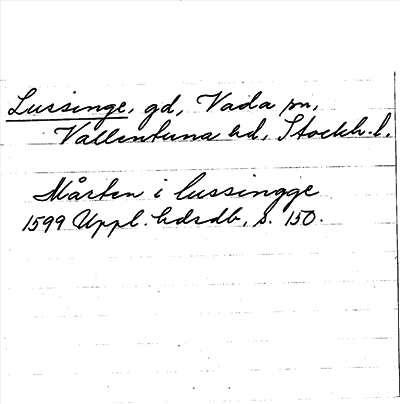 Lussinge, gd, Vada sn,
Vallentuna hd, Stockh. l.
Mårten i lussingge
1599 Uppl. hdrdb, s. 150.